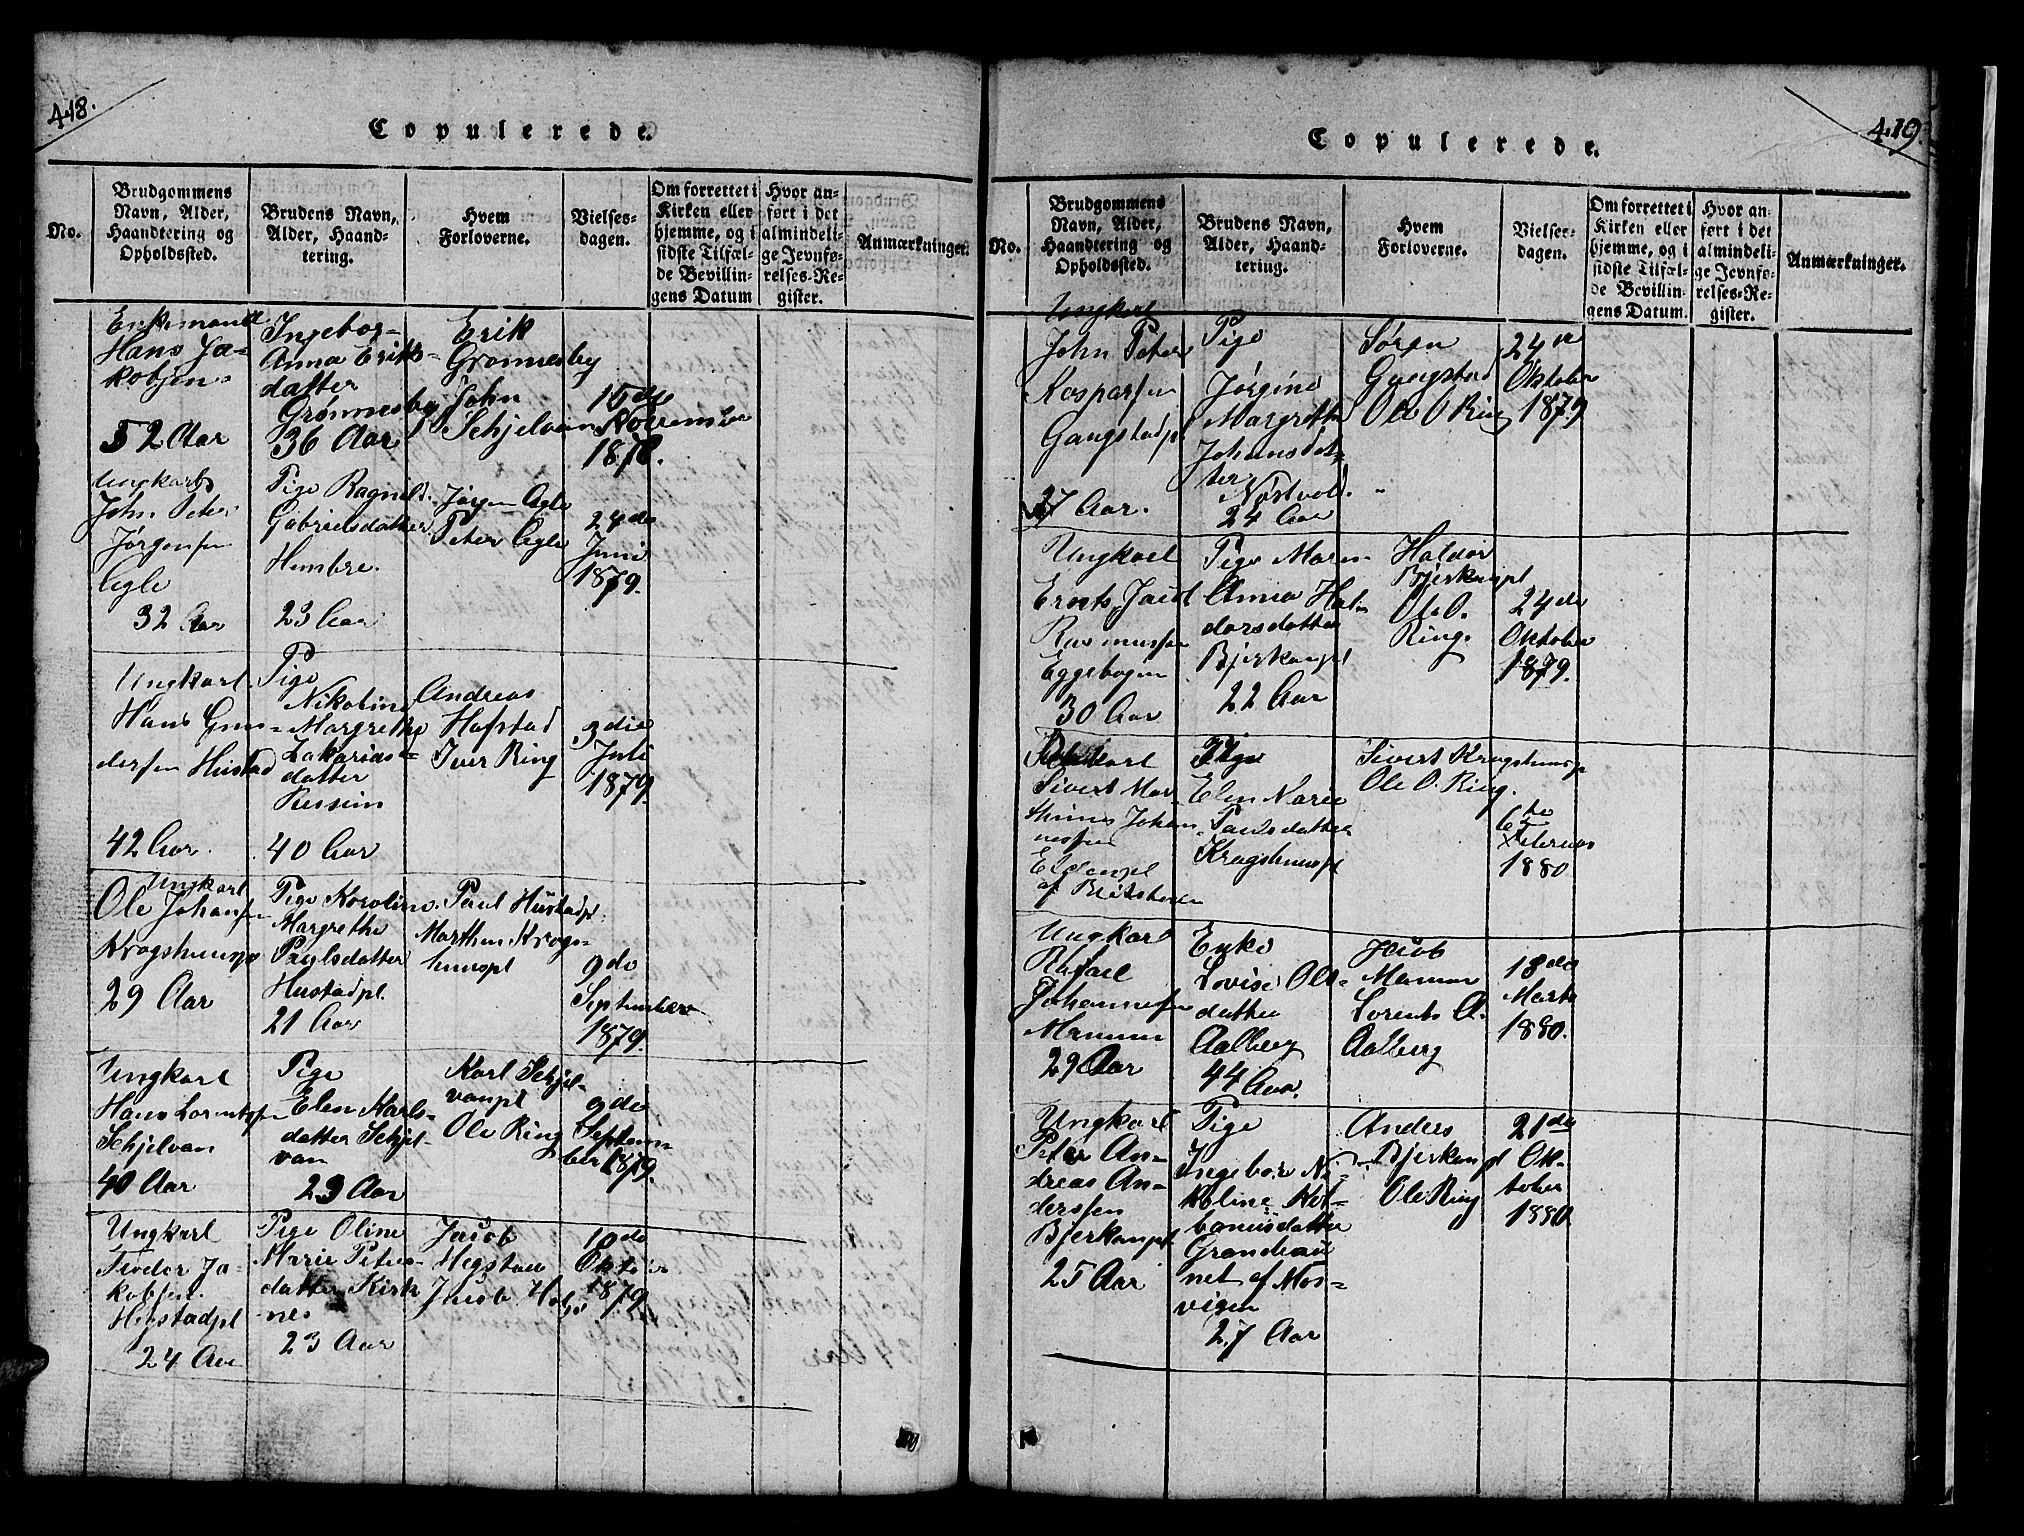 418.
Copulerede.
No.
Brudgommens
Navn, Alder,
Haandtering og
Opholdssted.
Brudens Navn,
Alder, Haand-
tering.
Hvem
Forloverne.
Vielses-
dagen.
Om forrettet i
Kirken eller
hjemme, og i
sidste Tilfæl-
de Bevillin-
gens Datum
Hvor an-
ført i det
almindeli-
ge Jevnfø-
relses-Re-
gister.
Anmærkninger.
Enkemand
Hans Ja-
kobsen
52 Aar
Ingebor-
Anna Eriks-
datter
Grønnesby
36 Aar
Erik
Grønnesby
John
Schjelvan
15de
November
1878.
Ungkarl
John Peter
Jørgensen
Agle
32 Aar
Pige Ragnild
Gabrielsdatter
Hembre.
23 Aar
Jørgen Agle
Peter Agle
24de
Juni
1879.
Ungkarl
Hans Gun-
dersen Hustad
42 Aar.
Pige
Nikoline
Margrethe
Zakarias-
datter
Ressem
40 Aar
Andreas
Hofstad
Iver Ring
3die
Juli
1879.
Ungkarl
Ole Johansen
Krogshuuspl
29 Aar
Pige Karoline
Margrethe
Paulsdatter
Hustadpl.
21 Aar
Paul Hustadpl.
Marthen Krogs-
huuspl
9de
September
1879.
Ungkarl
Hans Lorentsen
Schjelvan
40 Aar
Pige
Elen Karls-
datter Schjel-
van
23 Aar
Karl Schjel-
vanpl
Ole Ring
9de
Septem-
ber 1879.
Ungkarl
Teodor Ja-
kobsen.
Hegstadpl
24 Aar
Pige Oline
Marie Peters-
datter Kirk
nes
23 Aar
Jacob
Hegstad
Jacob
10de
Oktober
1879.
419.
Copulerede.
No.
Brudgommens
Navn, Alder,
Haandtering og
Opholdssted.
Brudens Navn,
Alder, Haand-
tering.
Hvem
Forloverne.
Vielses-
dagen.
Om forrettet i
Kirken eller
hjemme, og i
sidste Tilfæl-
de Bevillin-
gens Datum.
Hvor an-
ført i det
almindeli-
ge Jevnfø-
relses-Re-
gister.
Anmærkninger.
Ungkarl
John Peter
Kasparsen
Gangstadpl
27 Aar.
Pige
Jørgine
Margrethe
Johansdat-
ter
Nøstvold.
24 Aar
Søren
Gangstad
Ole O Ring
24de
Oktober
1879
Ungkarl
Ernts Jacob
Rasmussen
Eggebogen
30 Aar
Pige Maren
Anna Hal-
dorsdatter
Bjerkanpl
22 Aar
Haldor
Bjerkanpl
Ole O.
Ring.
24de
Oktober
1879.
Sivert Mar
thinus Johan
nessen
Pige
Elen Marie
Paulsdatter
Krogshuuspl
Sivert Krogshuuspl
Ole O. Ring.
6te
Februar
1880
Ungkarl
Rafael
Johannesen
Mamen
29 Aar
Enke
Lovise Ols-
datter
Aalberg
44 Aar.
Jacob
Mamen
Lorents A.
Aalberg
18de
Marts
1880.
Ungkarl
Peter An-
dreas An-
dersen
Bjerkanpl
25 Aar
Pige
Ingebor Ni-
koline Kol-
banusdatter
Grandeau
net af Mos-
vigen
27 Aar
Anders
Bjerkanpl
Ole Ring
21de
Ok-
tober
1880